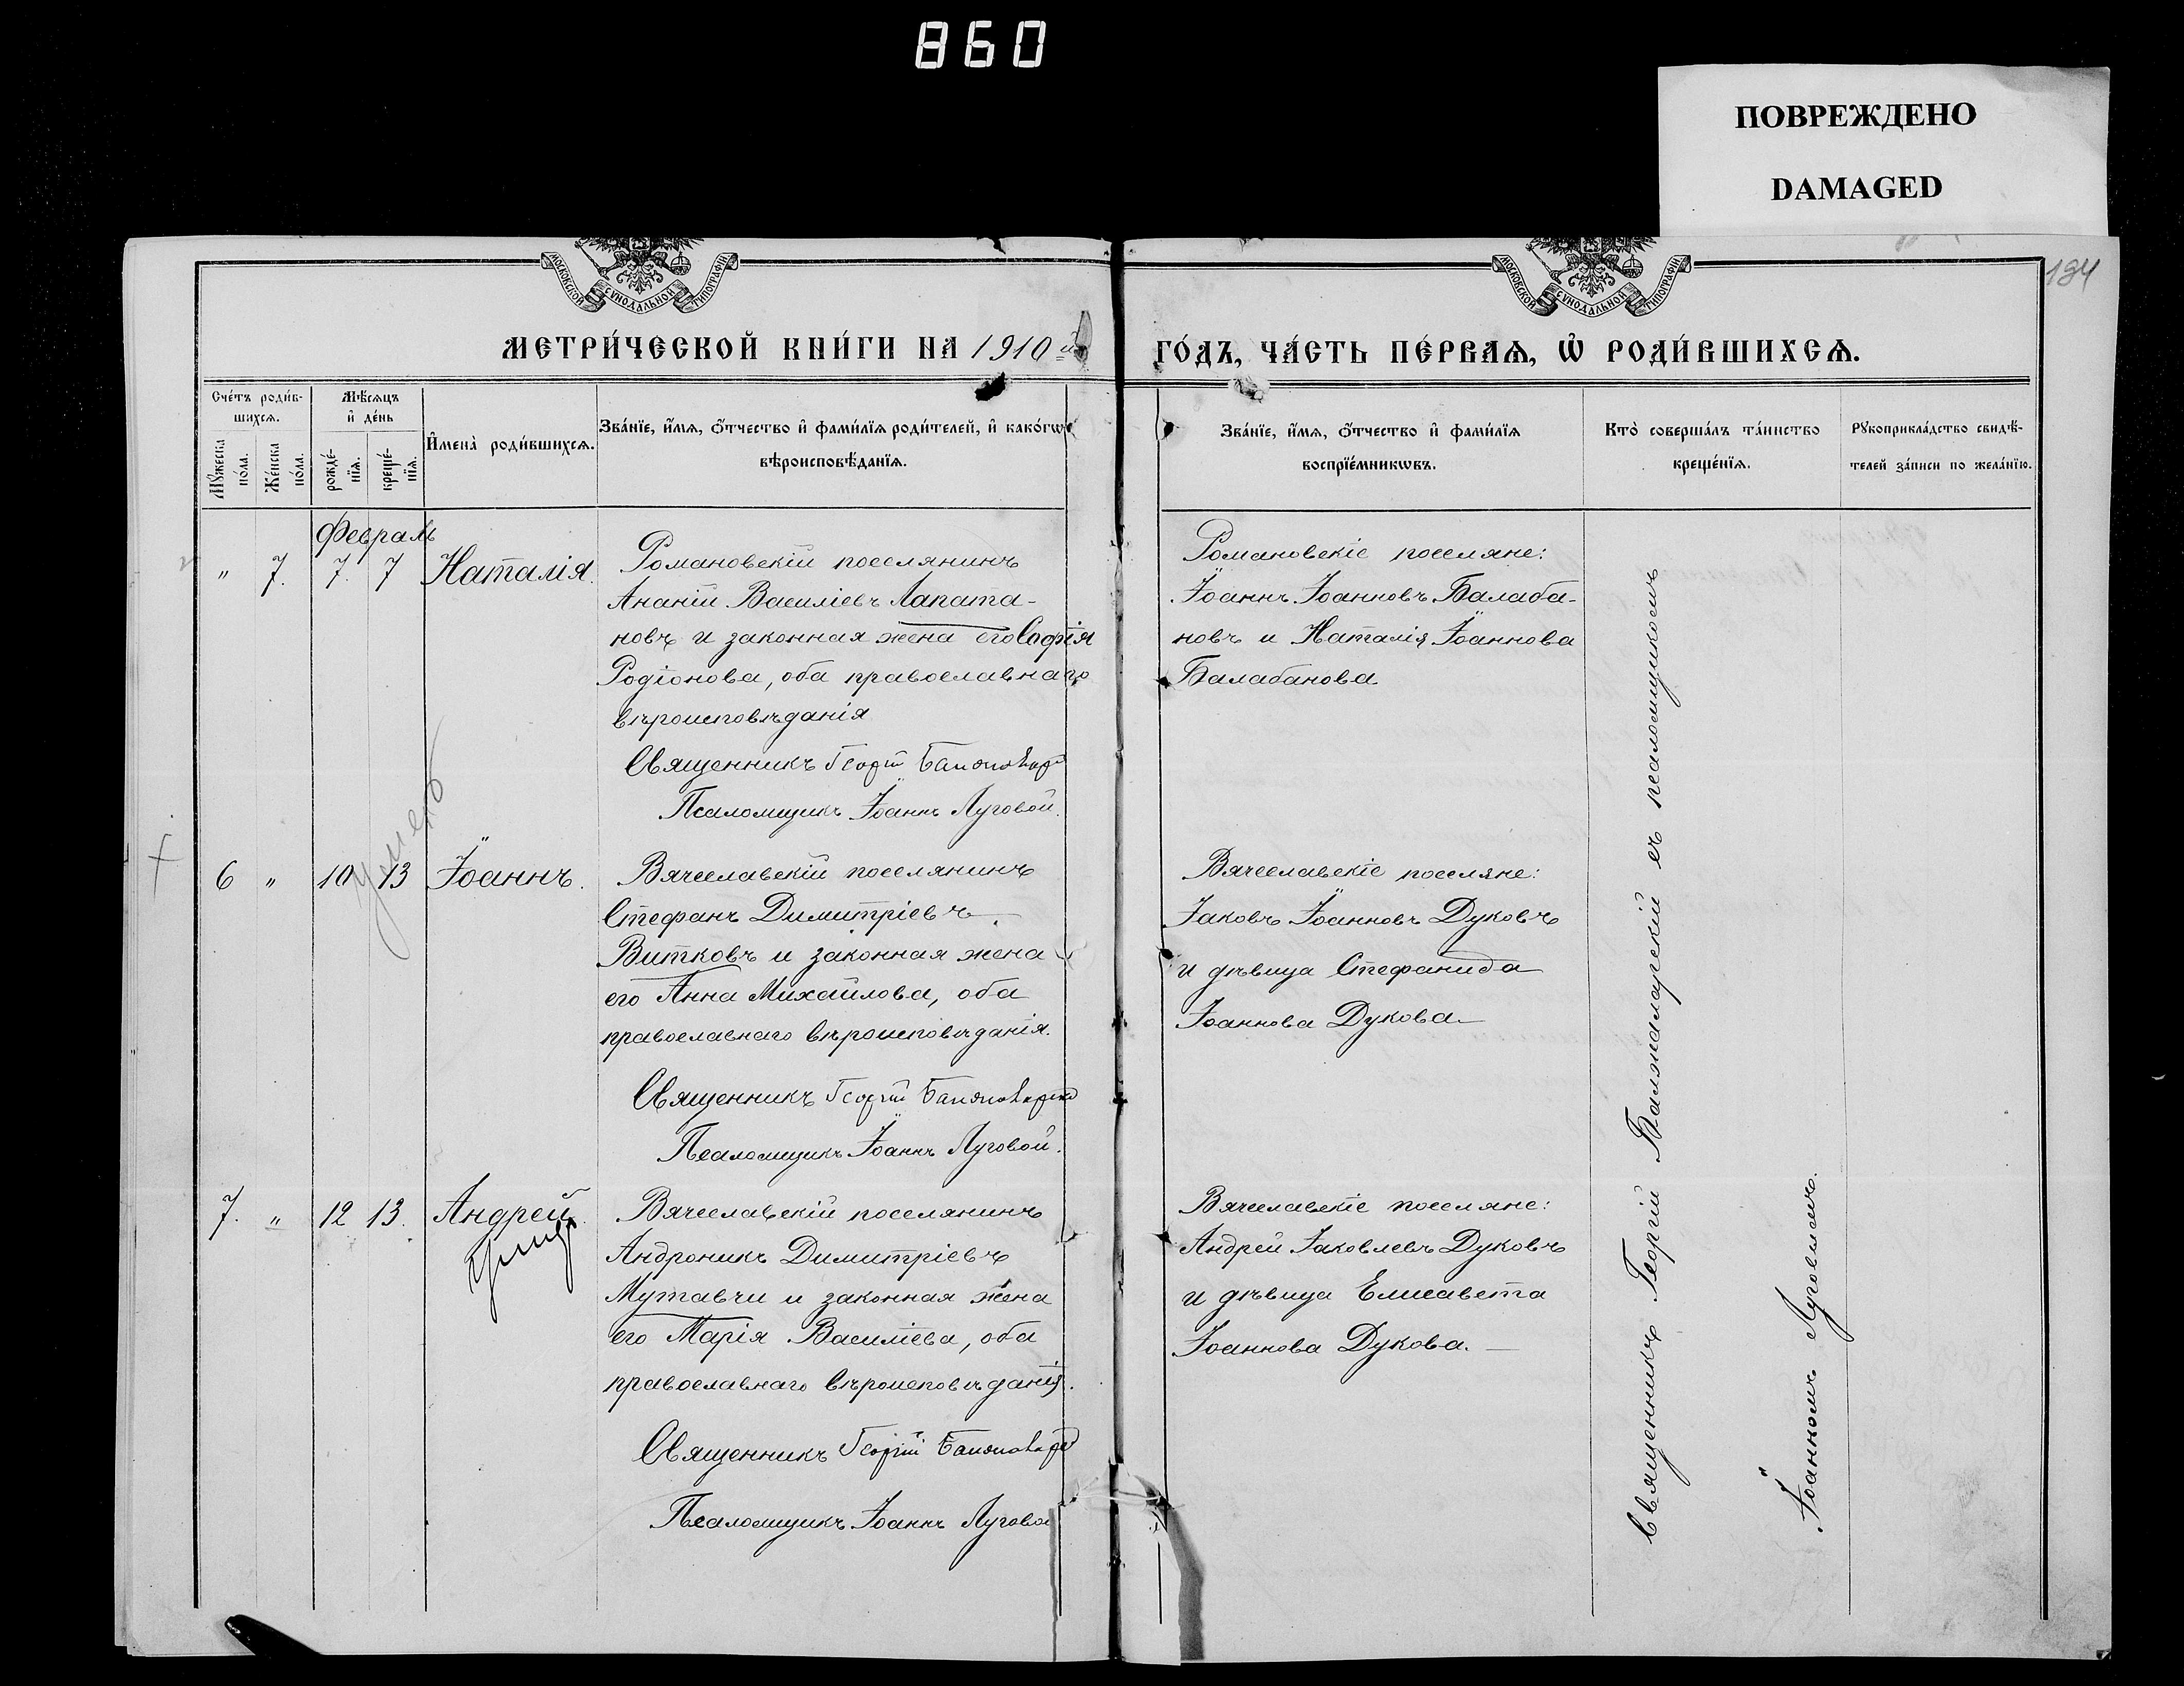 860
ПОВРЕЖДЕНО
DAMAGED
МОСКОВСКОЙ СѴНОДАЛЬНОЙ ТИПОГРАФІИ
МОСКОВСКОЙ СѴНОДАЛЬНОЙ ТИПОГРАФІИ
184
МЕТРИ́ЧЕСКОЙ КНИ́ГИ НА 1910 й
ГО́ДЪ, ЧА́СТЬ ПЕ́РВАѦ, Ѡ҆ РОДИ́ВШИХСѦ.
Сче́тъ роди́в-
шихсѧ.
Мꙋ́жеска
по́ла.
Же́нска
по́ла.
Мѣ́сѧцъ
и҆ де́нь
рожде́-
нїѧ.
креще́-
нїѧ.
И҆мена̀ роди́вшихсѧ.
Зва́нїе, и҆́мѧ, ѻ҆́тчество и҆ фами́лїѧ роди́телей, и҆ како́гѡ
вѣроисповѣ́данїѧ.
Зва́нїе, и҆́мѧ, ѻ҆́тчество и҆ фами́лїѧ
воспрїе́мникѡвъ.
Кто̀ соверша́лъ та́инство
креще́нїѧ.
Рꙋкоприкла́дство свидѣ́-
телей за́писи по жела́нїю.
Февраль
" 7. 7. 7 Наталія.
Романовскій поселянинъ
Ананій Василіевъ Лапата-
новъ и законная жена его Софія
Родіонова, оба православнаго
вѣроисповѣданія
Священникъ Георгій
Псаломщикъ Іоаннъ Луговой.
Романовскіе поселяне:
Іоаннъ Іоанновъ Балаба-
новъ и Наталія Іоаннова
Балабанова
умеръ
6 " 10 13 Іоаннъ.
Вячеславскій поселянинъ
Стефанъ Димитріевъ
Витковъ и законная жена
его Анна Михайлова, оба
православнаго вѣроисповѣданія.
Священникъ Георгій
Псаломщикъ Іоаннъ Луговой.
Вячеславскіе поселяне:
Іаковъ Іоанновъ Дуковъ
и дѣвица Стефанида
Іоаннова Дукова
7. " 12 13. Андрей.
умеръ
Вячеславскій поселянинъ
Андроникъ Димитріевъ
Мутавчи и законная жена
его Марія Василіева, оба
православнаго вѣроисповѣданія.
Священникъ Георгій
Псаломщикъ Іоаннъ Лугово
Вячеславскіе поселяне:
Андрей Іаковлевъ Дуковъ
и дѣвица Елисавета
Іоаннова Дукова.
Священникъ Георгій Балжаларскій съ псаломщикомъ
Іоанномъ Луговымъ.